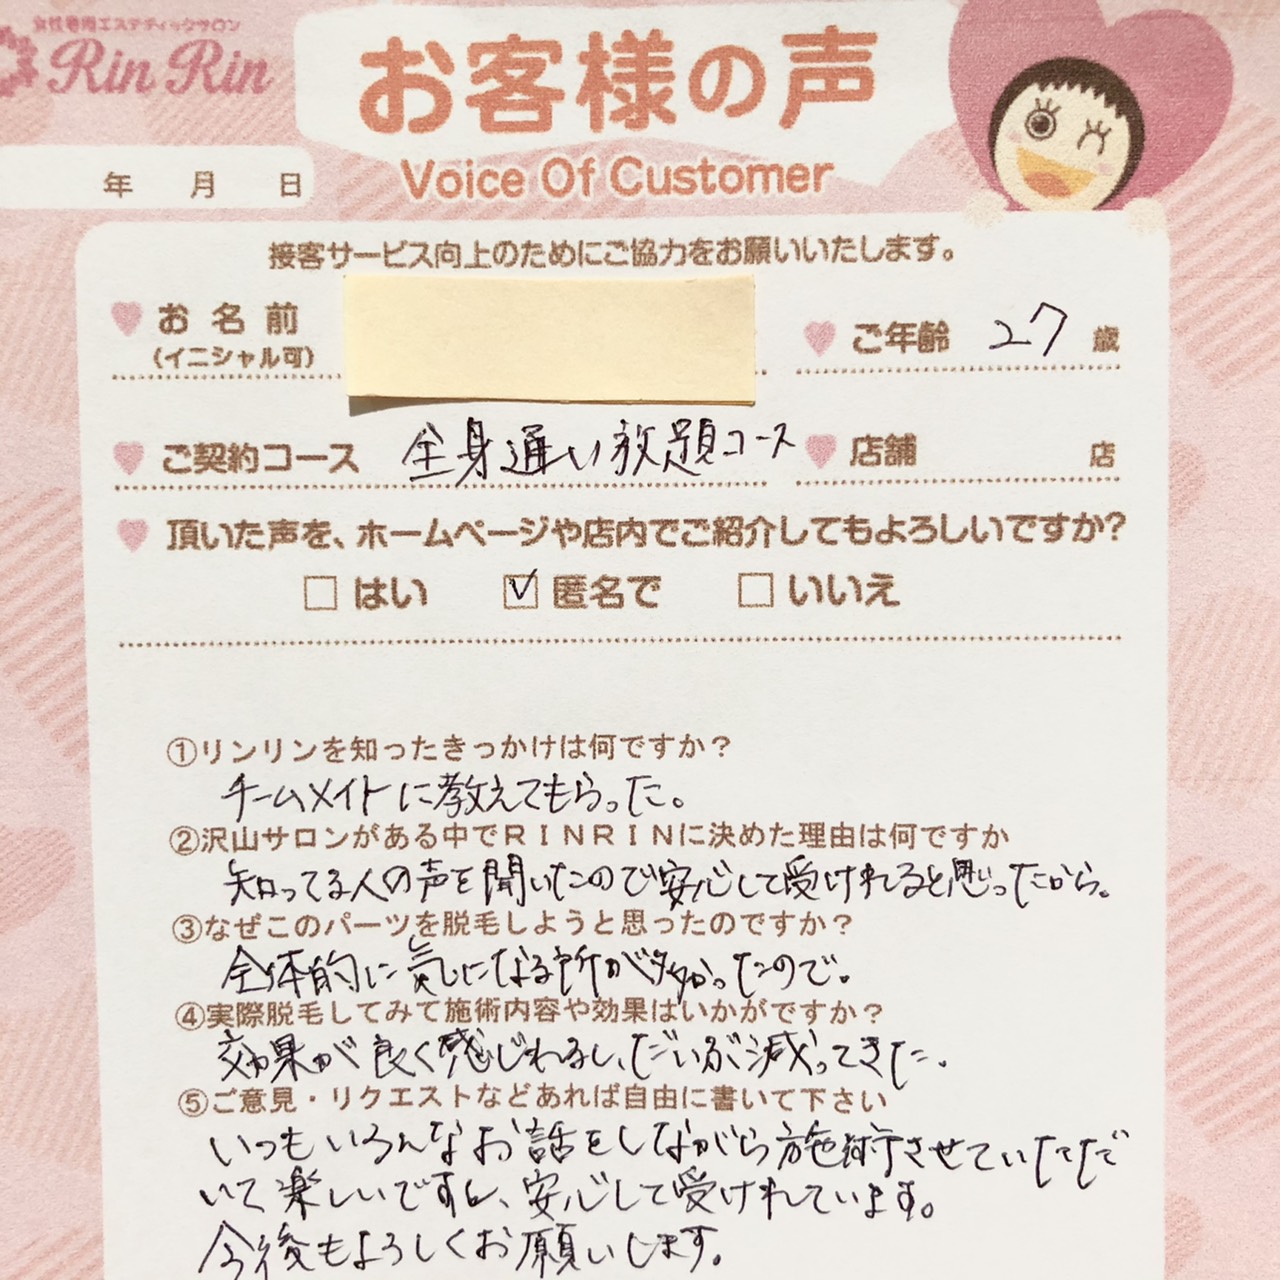 女性専用エステティックサロン
Rin Rin
お客様の声
Voice Of Customer
年 月 日
接客サービス向上のためにご協力をお願いいたします。
お名前
(イニシャル可)
ご年齢 27 歳
ご契約コース 全身通い放題コース
店舗 店
頂いた声を、ホームページや店内でご紹介してもよろしいですか?
はい 匿名で いいえ
①リンリンを知ったきっかけは何ですか?
チームメイトに教えてもらった。
②沢山サロンがある中でRINRINに決めた理由は何ですか
知ってる人の声を聞いたので安心して受けれると思ったから。
③なぜこのパーツを脱毛しようと思ったのですか?
全体的に気になる所が多かったので。
④実際脱毛してみて施術内容や効果はいかがですか?
効果が良く感じれるし、だいぶ減ってきた。
⑤ご意見・リクエストなどあれば自由に書いて下さい
いつもいろんなお話をしながら施術させていただ
いて楽しいですし、安心して受けれています。
今後もよろしくお願いします。